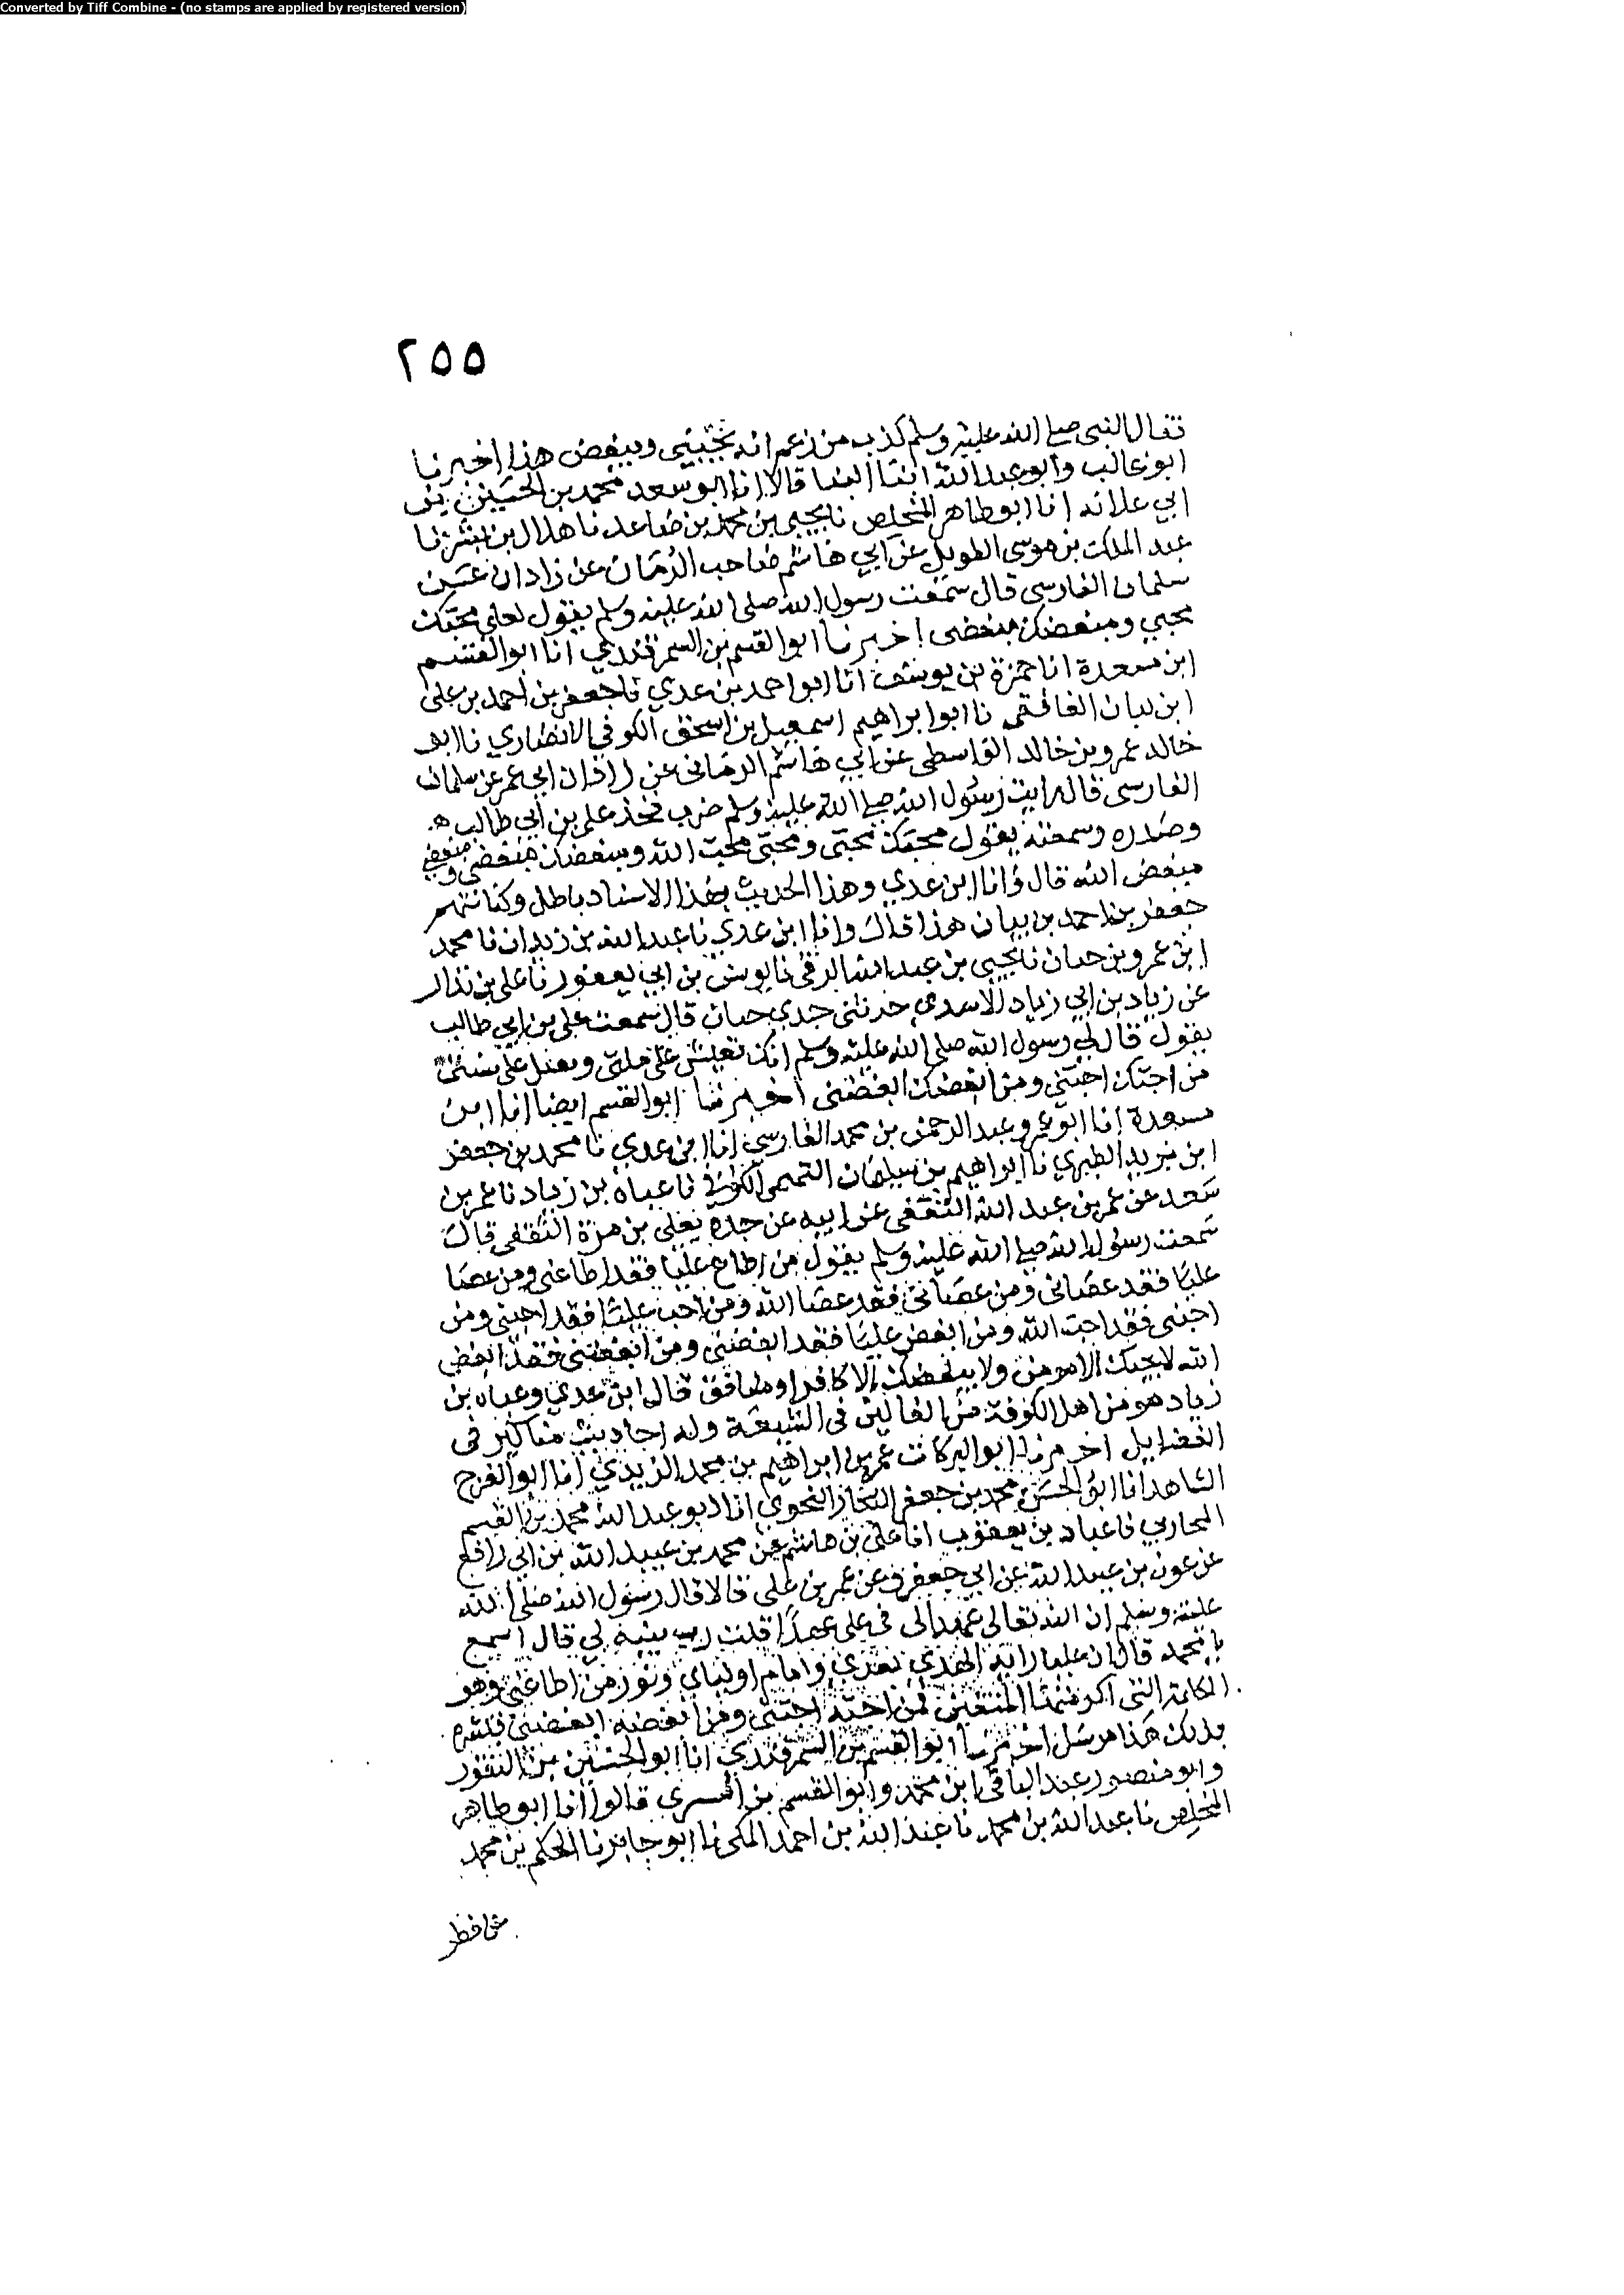 Converted by Tiff Combine - (no stamps are applied by registered version)
٢٥٥
فقال النبي صلى الله عليه وسلم كذب من زعم انه يحبني ويبغض هذا اخبرنا
ابو غالب وابو عبد الله ابنا البنا قالا انا ابو سعد محمد بن الحسين بن
ابي علانه انا ابو طاهر المخلص نا يحيى بن محمد بن صاعد نا هلال بن بشر نا
عبد الملك بن موسى الطويل عن ابي هاشم صاحب الرمان عن زادان عن
سلمان الفارسي قال سمعت رسول الله صلى الله عليه وسلم يقول لعلي محبك
محبي ومبغضك مبغضي اخبرنا ابو القسم بن السمرقندي انا ابو القسم
ابن مسعدة انا حمزة بن يوسف انا ابو احمد بن عدي نا جعفر بن احمد بن علي
ابن بيان الغافقي نا ابو ابراهيم اسمعيل بن اسحق الكوفي الانصاري نا ابو
خالد عمرو بن خالد الواسطي عن ابي هاشم الرماني عن زاذان ابي عمر عن سلمان
الفارسي قال رايت رسول الله صلى الله عليه وسلم ضرب فخذ علي بن ابي طالب
وصدره وسمعته يقول محبك محبي ومحبي محب الله ومبغضك مبغضي ومبغضي
مبغض الله قال وانا ابن عدي وهذا الحديث بهذا الاسناد باطل وكنا نتهم
جعفر بن احمد بن بيان هذا قال وانا ابن عدي نا عبد الله بن زيدان نا محمد
ابن عمرو بن حنان نا يحيى بن عبد الرقي نا يونس بن ابي يعفور نا علي بن نزار
عن زياد بن ابي زياد الاسدي حدثني جدي حيان قال سمعت علي بن ابي طالب
يقول قال لي رسول الله صلى الله عليه وسلم انك تعيش على ملتي وتقتل على سنتي
من احبك احبني ومن ابغضك ابغضني اخبرنا ابو القسم ايضا انا ابن
مسعدة انا ابو عمرو عبد الرحمن بن محمد الفارسي انا ابن عدي نا محمد بن جعفر
ابن يزيد الطبري نا ابراهيم بن سليمان التميمي الكوفي نا عباه بن زياد نا عمر بن
سعد عن عمر بن عبد الله الثقفي عن ابيه عن جده يعلى بن مرة الثقفي قال
سمعت رسول الله صلى الله عليه وسلم يقول من اطاع عليا فقد اطاعني ومن عصا
عليا فقد عصاني ومن عصاني فقد عصا الله ومن احب عليا فقد احبني ومن
احبني فقد احب الله ومن ابغض عليا فقد ابغضني ومن ابغضني فقد ابغض
الله لا يحبك الا مومن ولا يبغضك الا كافر او منافق قال ابن عدي وعباه بن
زياد هو من اهل الكوفة من الغالين في الشيعة وله احاديث مناكير في
الفضايل اخبرنا ابو البركات عمر بن ابراهيم بن محمد الزيدي انا ابو الفرج
الشاهد انا ابو الحسن محمد بن جعفر النجار النحوي انا ابو عبد الله محمد بن القسم
المحاربي نا عباد بن يعقوب انا علي بن هاشم عن محمد بن عبيد الله بن ابي رافع
عن عون بن عبيد الله عن ابي جعفر وعن عمر بن علي قالا قال رسول الله صلى الله
عليه وسلم ان الله تعالى عهد الي في علي عهدا قلت رب بينه لي قال اسمع
يا محمد قال ان عليا راية الهدي بعدي وامام اوليائي ونور من اطاعني وهو
الكلمة التي الزمتها المتقين من احبه احبني ومن ابغضه ابغضني فبشره
بذلك هذا مرسل اخبرنا ابو القسم بن السمرقندي انا ابو الحسين بن النقور
وابو منصور عبد الباقي ابن محمد وابو القسم بن البسري قالوا انا ابو طاهر
المخلص نا عبد الله بن محمد نا عبد الله بن احمد المكي نا ابو جابر نا الحكم بن محمد